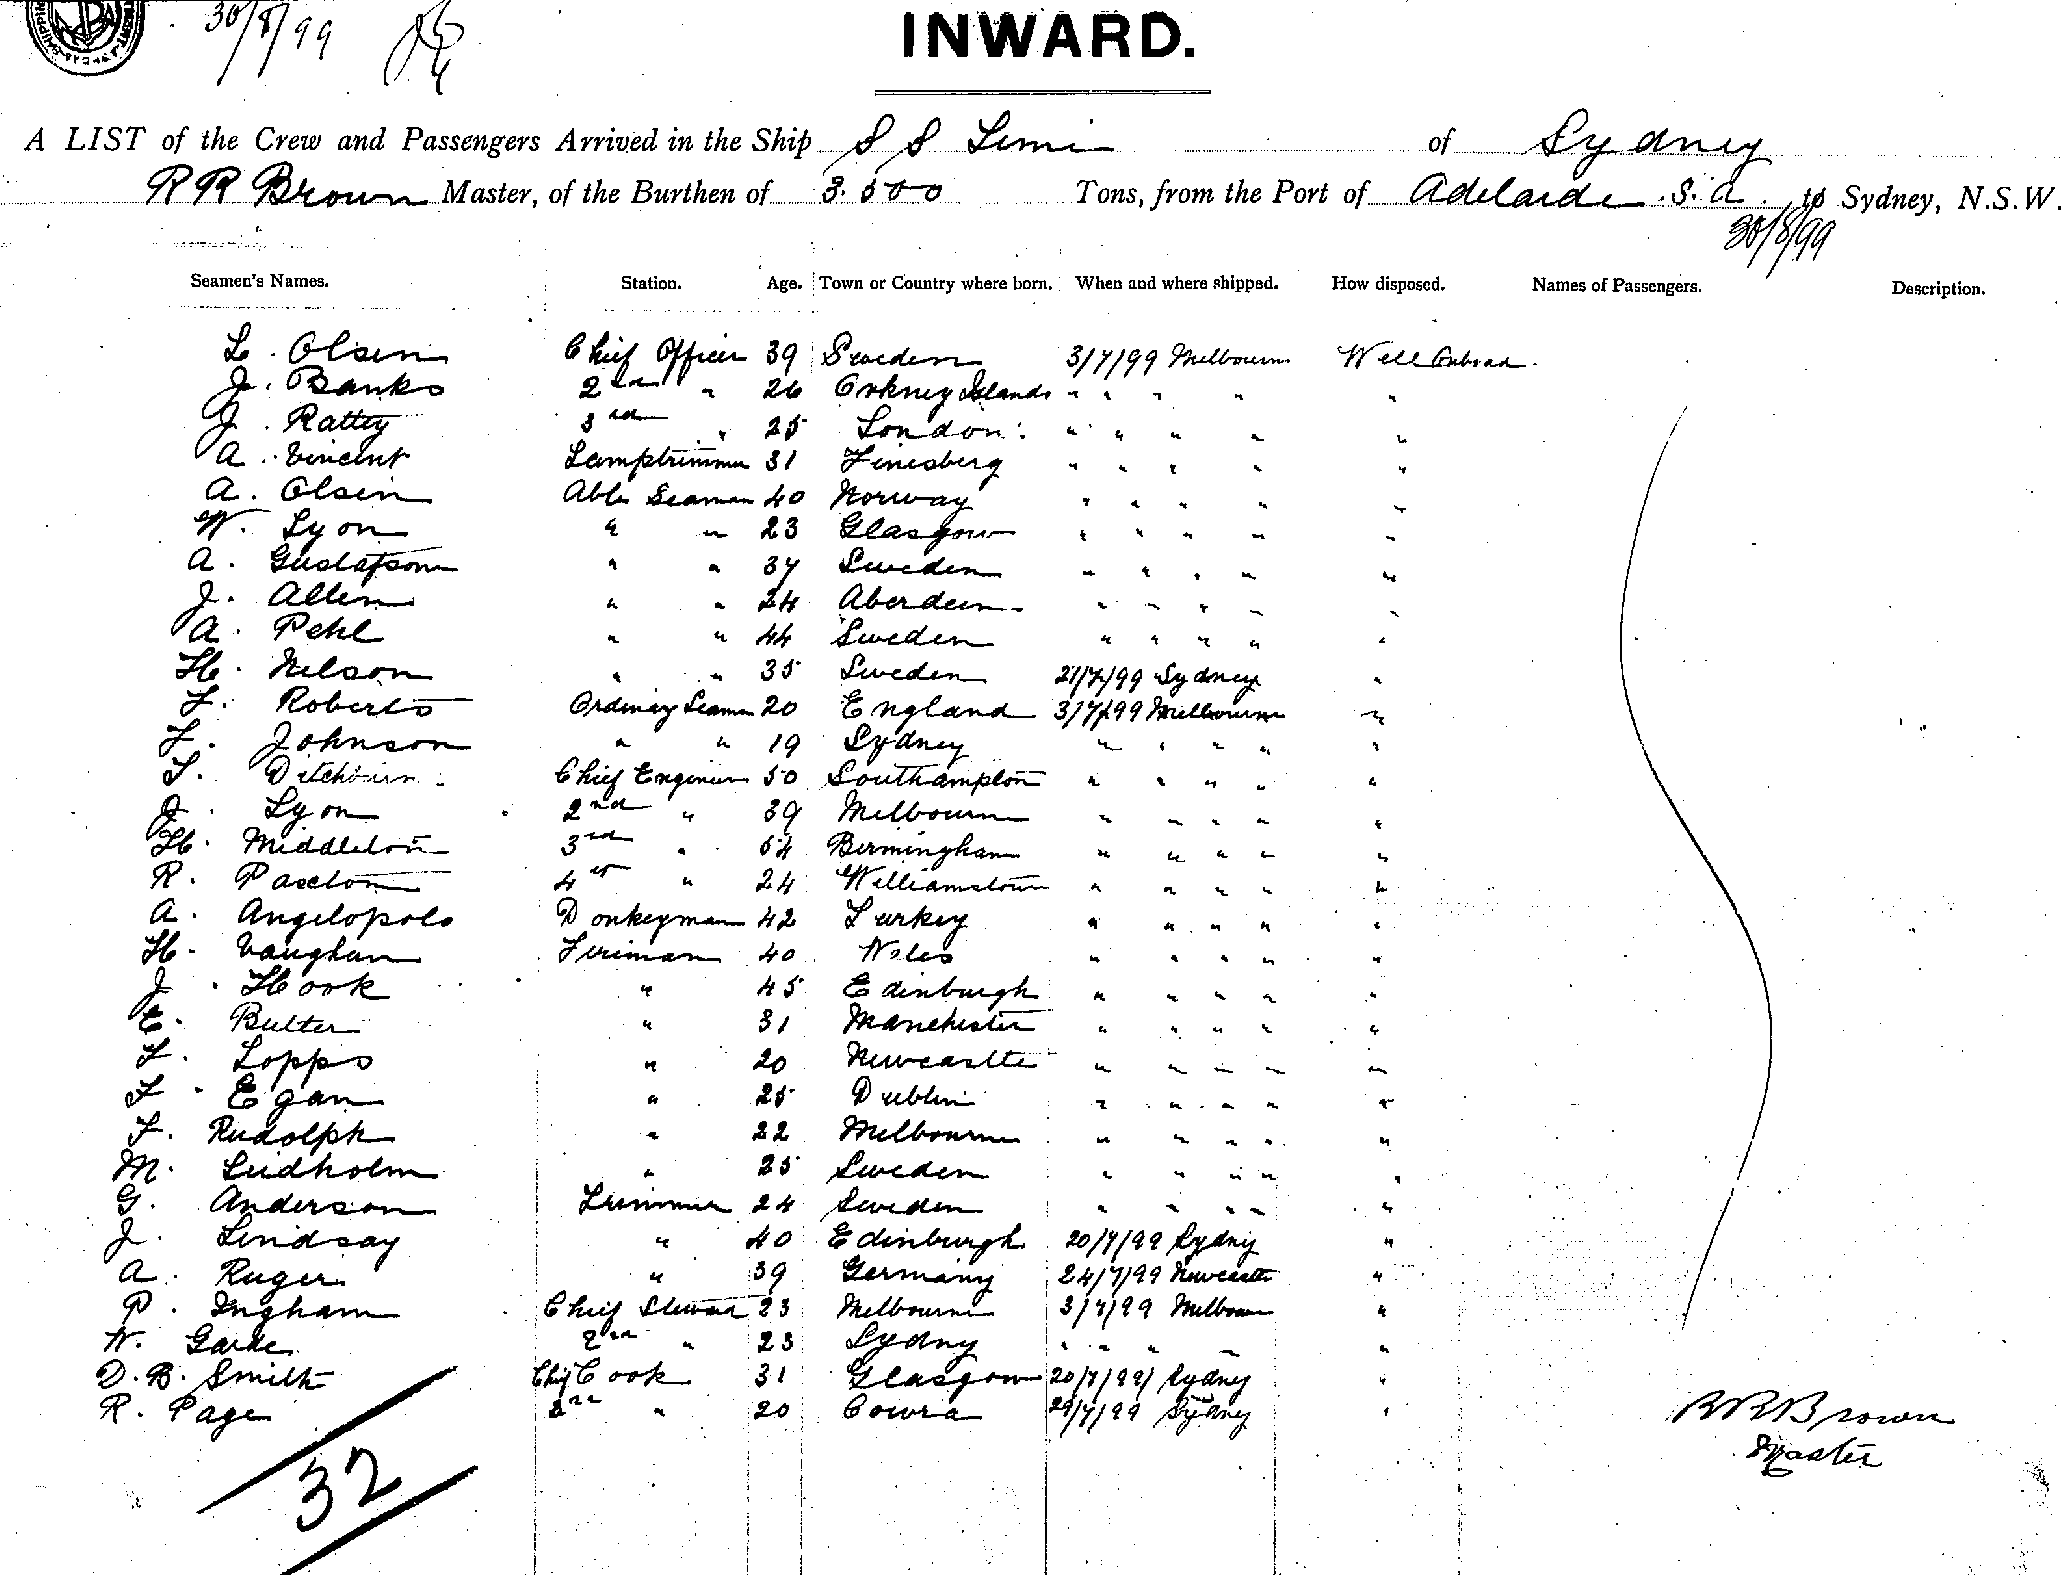 30/8/99
INWARD.
A LIST of the Crew and Passengers Arrived in the Ship S S Timi of Sydney
R R Brown Master, of the Burthen of 3.500 Tons, from the Port of Adelaide S.A. to Sydney, N.S.W.
30/8/99
Seamen's Names. Station. Age. Town or Country where born. When and where shipped. How disposed. Names of Passengers. Description.
L. Olsen Chief Officer 39 Sweden 3/7/99 Melbourne Well Onboard
J. Banks 2nd " 26 Orkney Islands " " " " "
J. Rattey 3rd " 25 London " " " " "
A. Vincent Lamptrimmer 31 " " " " "
A. Olsen Able Seaman 40 Norway " " " " "
W. Lyon " " 23 Glasgow " " " " "
A. Gustafson " " 37 Sweden " " " " "
J. Allen " " 24 Aberdeen " " " " "
A. Pehl " " 44 Sweden " " " " "
H. Nelson " " 35 Sweden 21/7/99 Sydney "
F. Roberts Ordinary Seaman 20 England 3/7/99 Melbourne "
F. Johnson " " 19 Sydney " " " " "
T. Ditchburn Chief Engineer 50 Southampton " " " " "
J. Lyon 2nd " 39 Melbourne " " " " "
H. Middleton 3rd " 54 Birmingham " " " " "
R. Paxton 4th " 24 Williamstown " " " " "
A. Angelopolo Donkeyman 42 Turkey " " " " "
H. Vaughan Fireman 40 Wales " " " " "
J. Hook " 45 Edinburgh " " " " "
E. Butter " 31 Manchester " " " " "
F. Lopps " 20 Newcastle " " " " "
F. Egan " 25 Dublin " " " " "
F. Rudolph " 22 Melbourne " " " " "
M. Leidholm " 25 Sweden " " " " "
G. Anderson Trimmer 24 Sweden " " " " "
J. Lindsay " 40 Edinburgh 20/7/99 Sydney "
A. Ruger " 39 Germany 24/7/99 Newcastle "
P. Ingham Chief Steward 23 Melbourne 3/7/99 Melbourne "
W. Garde 2nd " 23 Sydney " " " " "
D. B. Smith Chief Cook 31 Glasgow 20/7/99 Sydney "
R. Page 2nd " 20 Cowra 29/7/99 Sydney "
R R Brown
Master
32